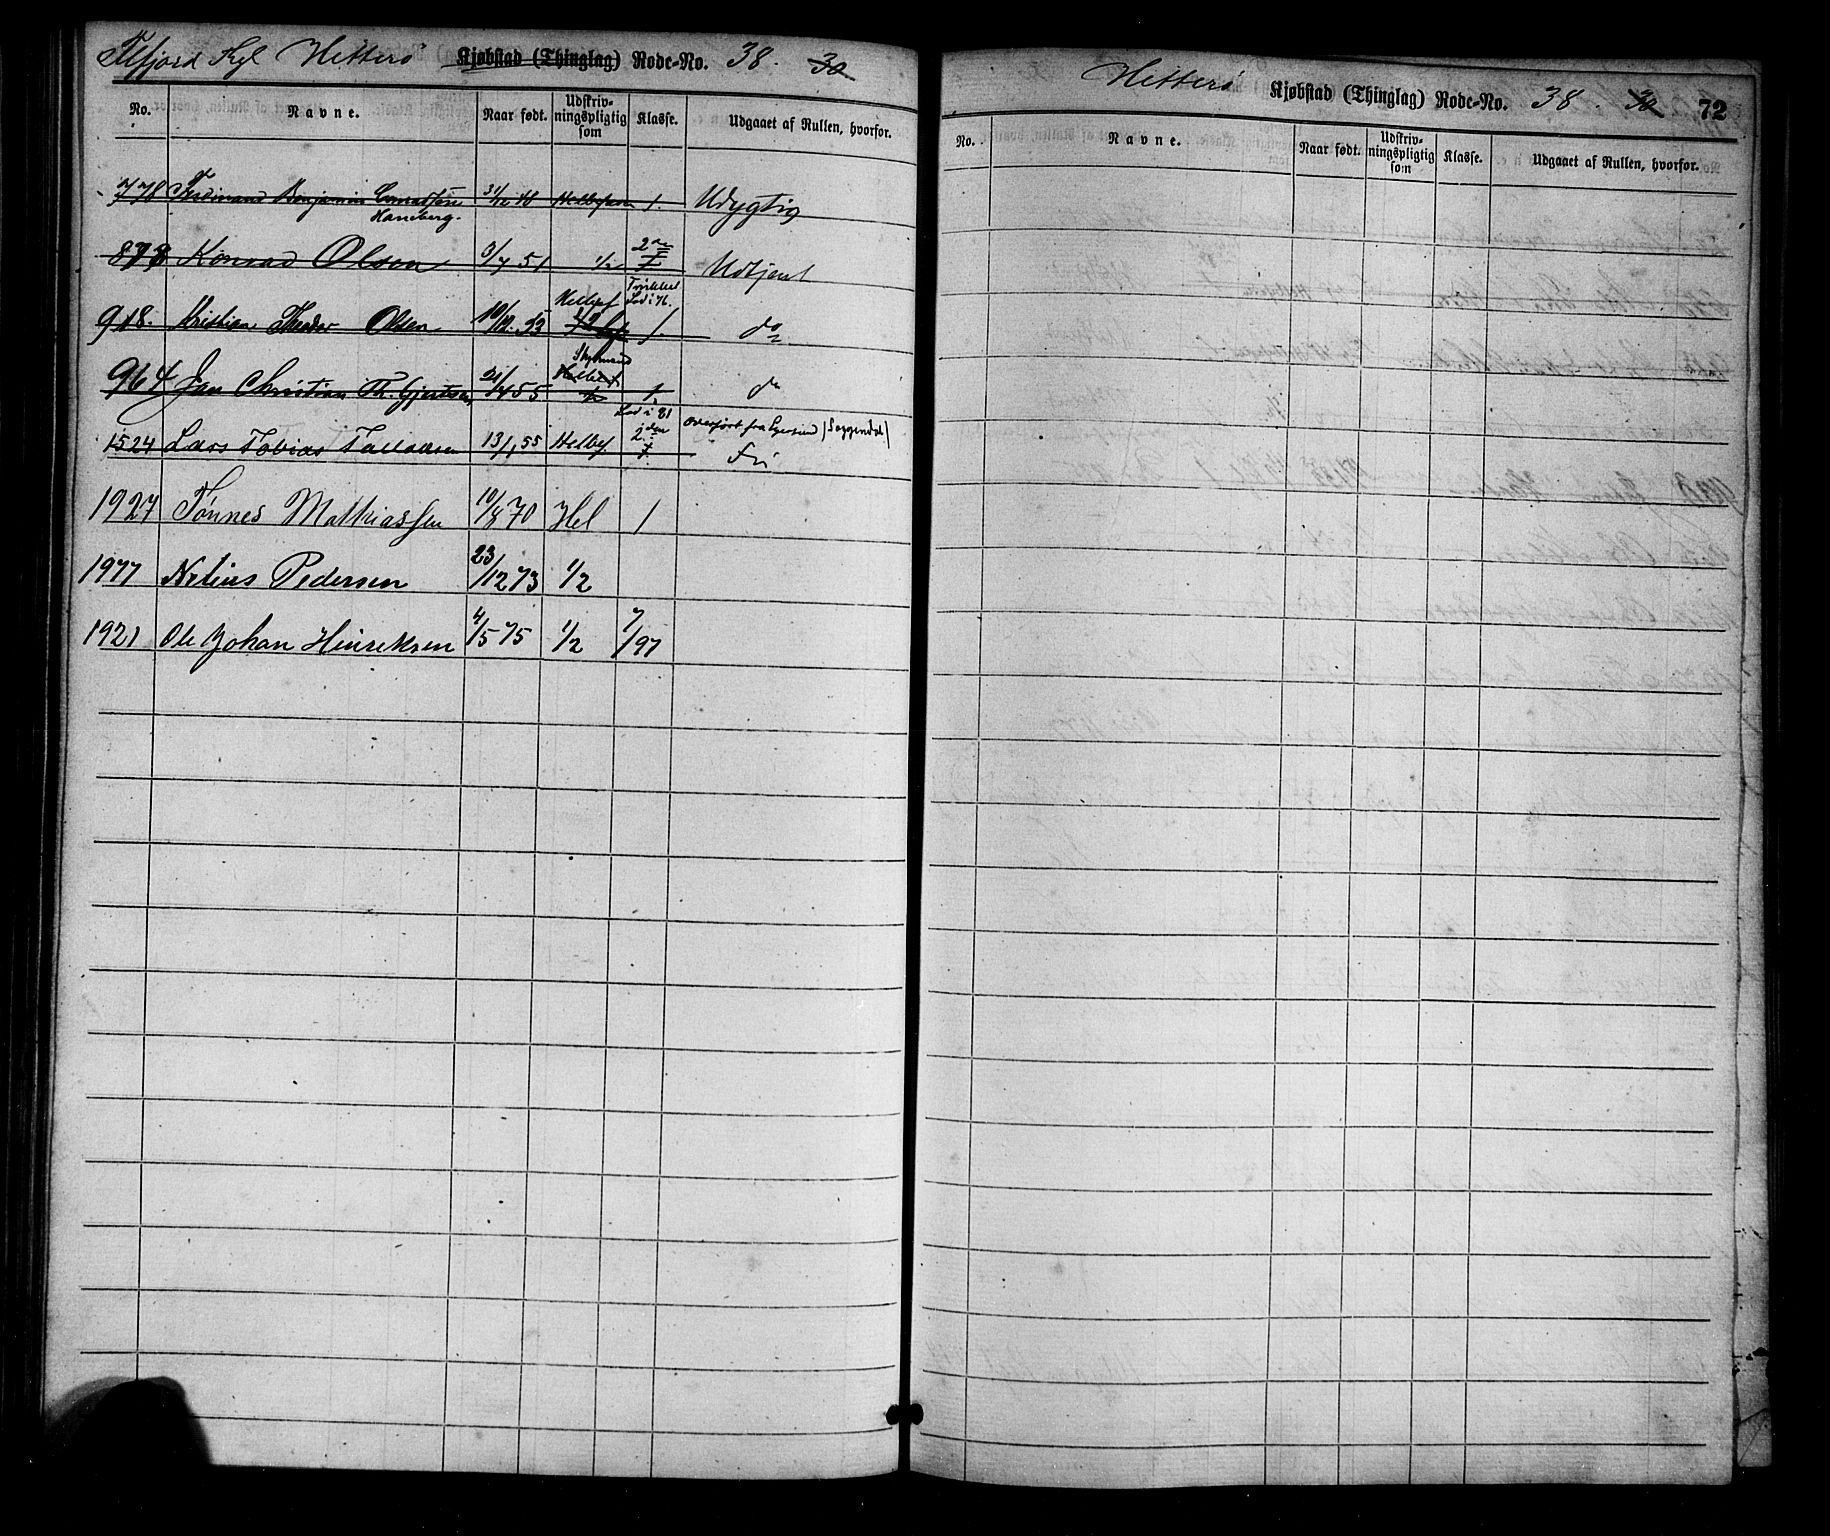 Flefjord Kgl Hitterø Kjøbstad (Thinglag) Rode-No. 38. 30
No. Navne. Naar født. Udskrivningspligtig som Klasse. Udgaaet af Rullen, hvorfor.
778 Ferdinand Benjamin Conradsen Haneberg. 1. Udygtig
873 Konrad Olsen 3/7 51 1/2 2den Udtjent
918. Kristian Theodor Olsen 10/12 53 Helbef 1/2 Trukket Lod i 76. 1 do
964 Jan Christian Th. Gjertsen 21/4 55 Skydsmand Helbef 1 do
1524 Lars Tobias Tallaksen 13/1 55 Helbef. Lod i 81 2den Overført fra Egersund (Soggendal) Fri
1927 Tønnes Mathiassen 10/8 70 Hel 1
1977 Netius Pedersen 23/12 73 1/2
1921 Ole Johan Hinreksen 4/5 75 1/2 7/97
Hitterø Kjøbstad (Thinglag) Rode-No. 38. 30 72
No. Navne. Naar født. Udskrivningspligtig som Klasse. Udgaaet af Rullen, hvorfor.